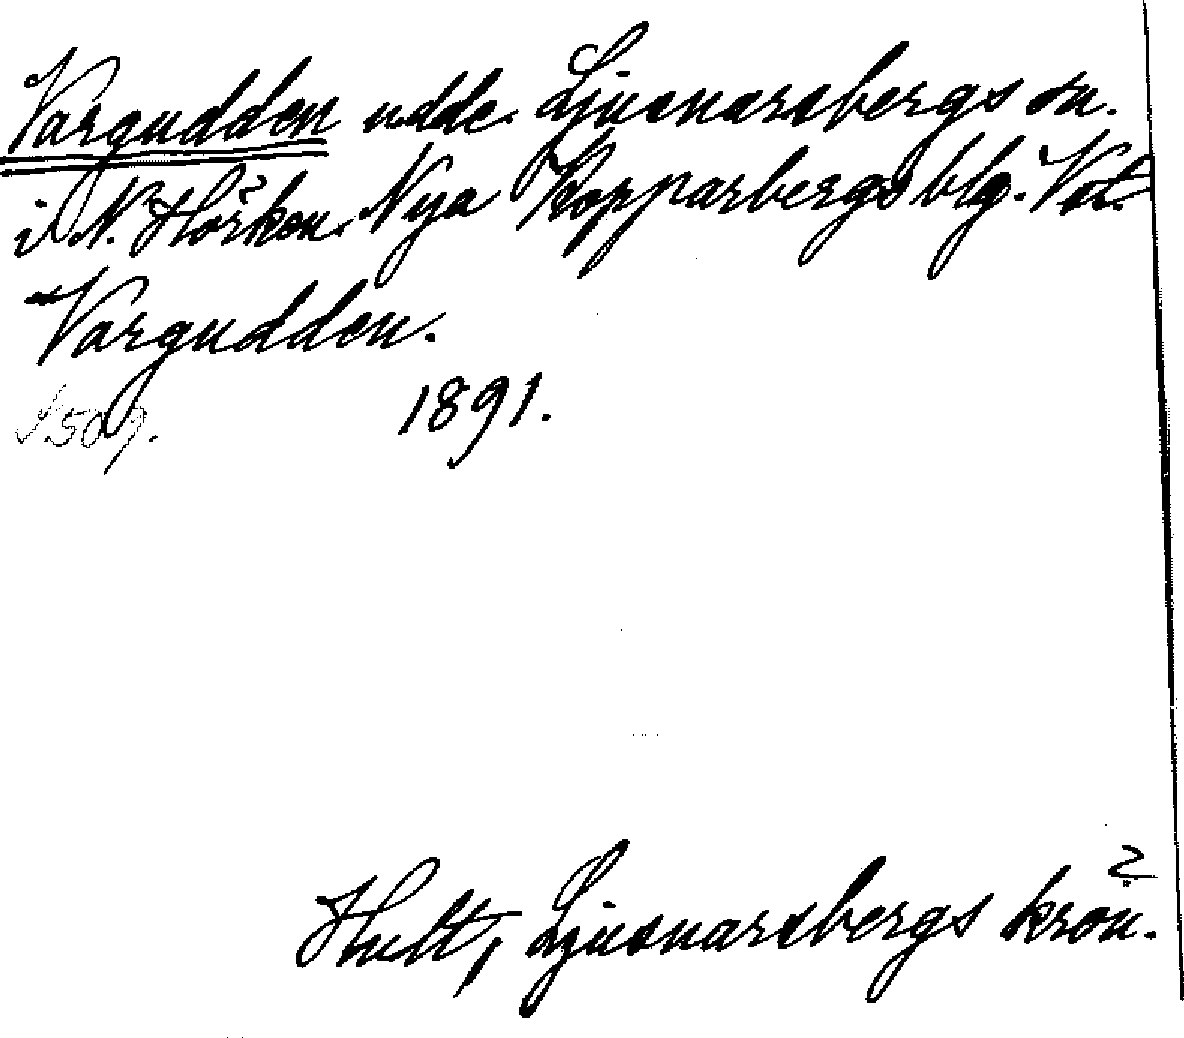 Vargudden udde. Ljusnarsbergs sn.
i N. Hörken. Nya Kopparbergs blg. Vst.
Vargudden.
S. 509. 1891.
2
Hult, Ljusnarsbergs krön.